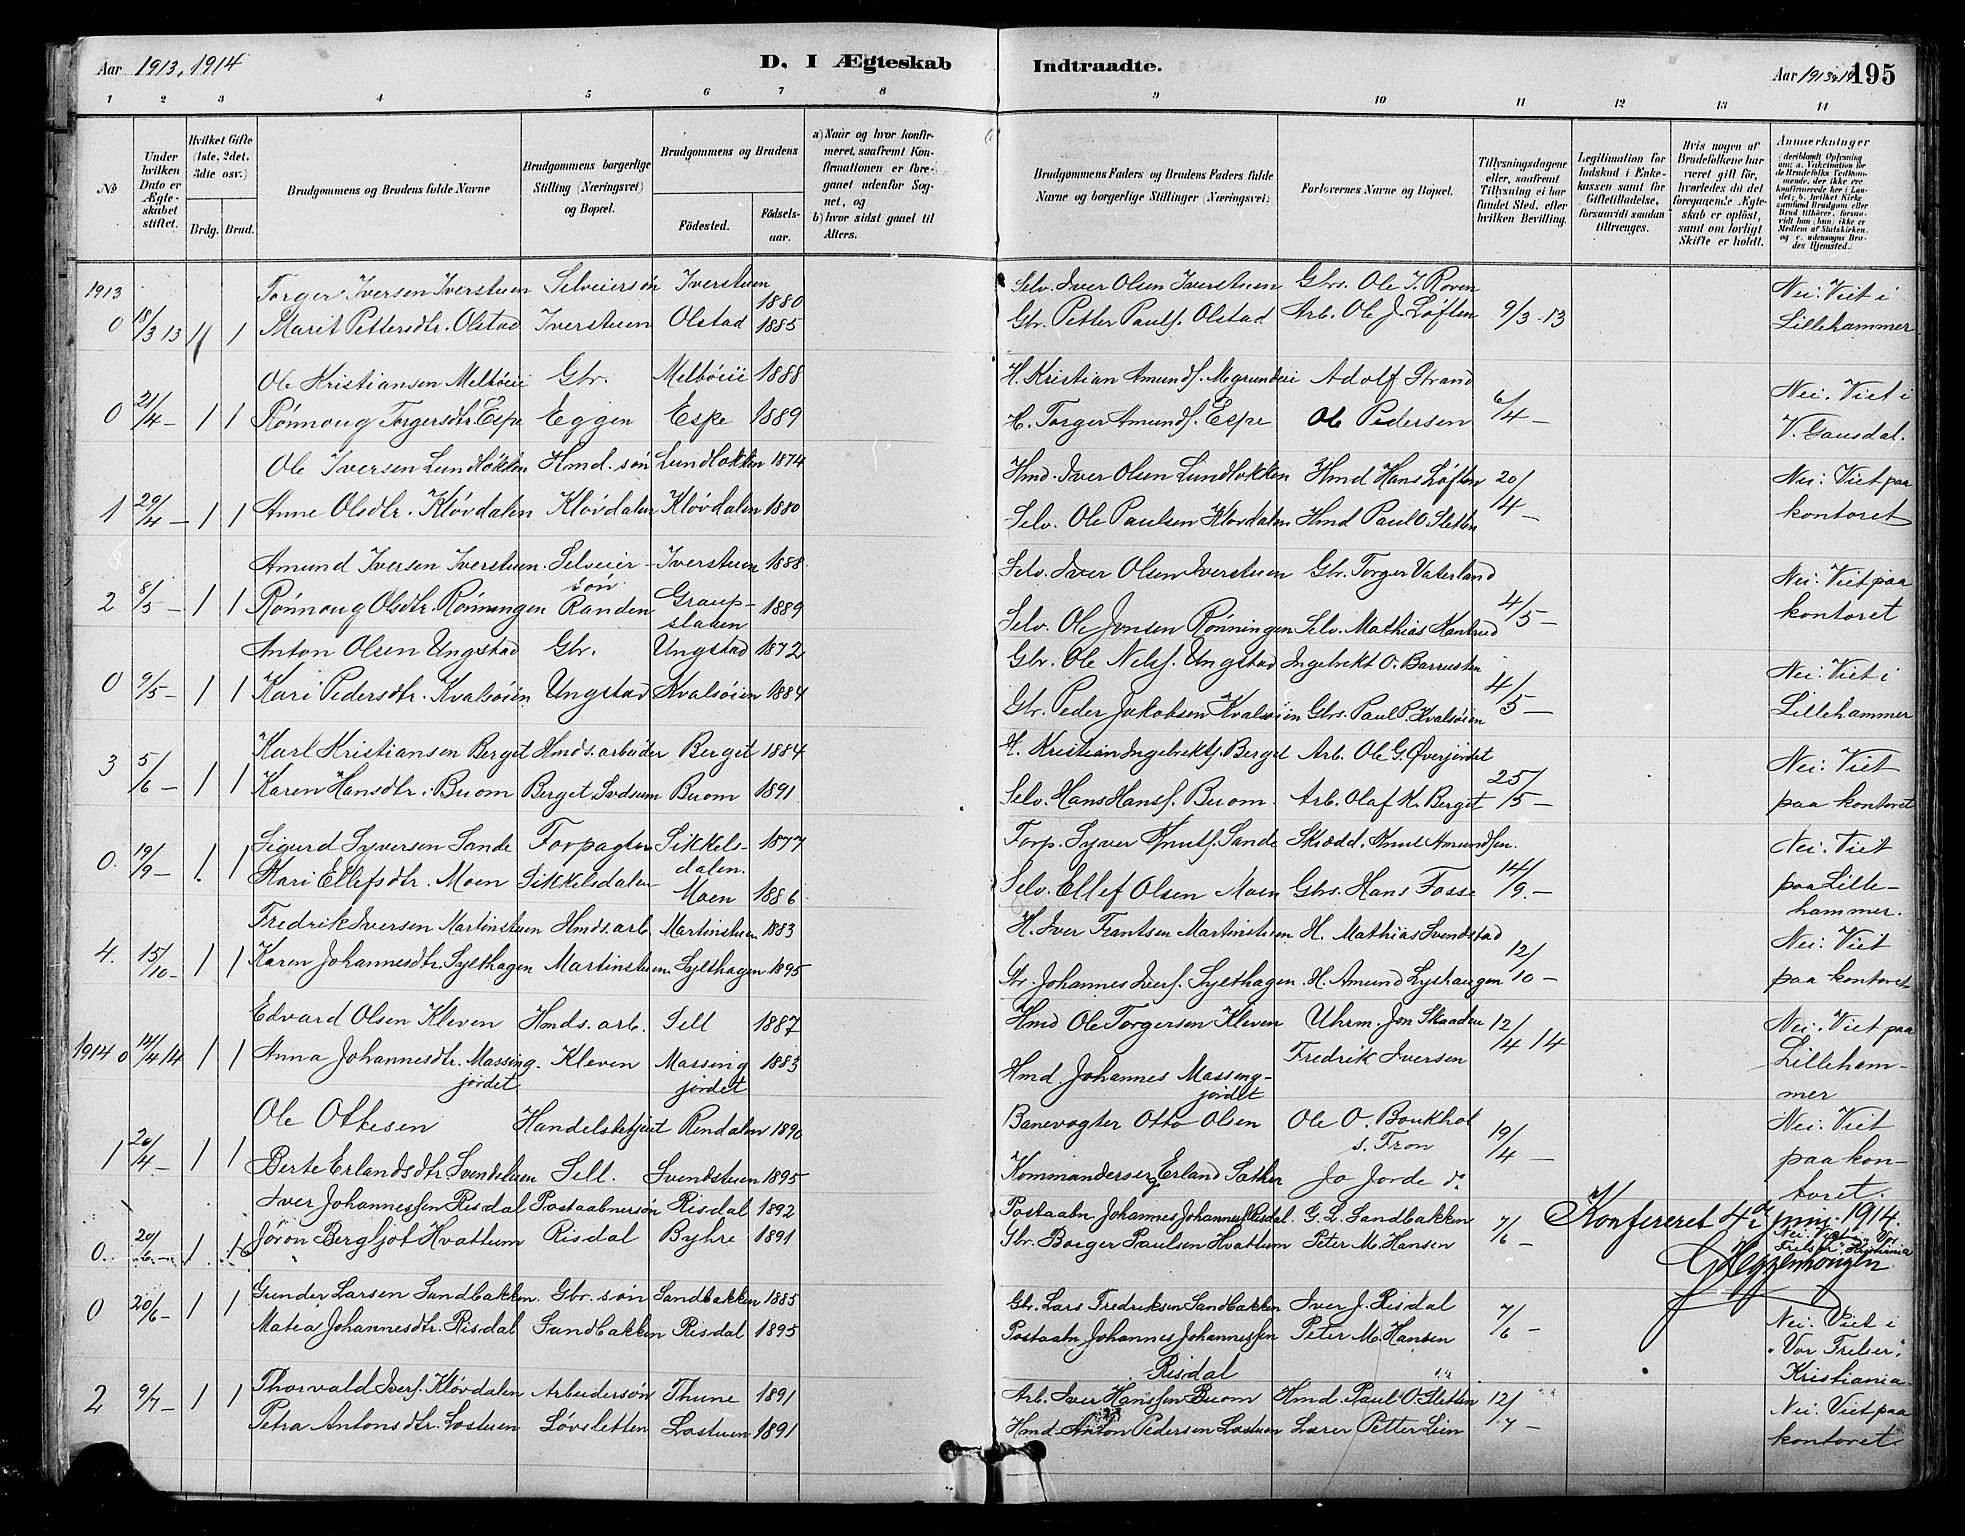 Aar 1913, 1914
D. I Ægteskab Indtraadte.
Aar 1913 195
1 2 3 4 5 6 7 8 9 10 11 12 13 14
№
Under hvilken Dato er Ægteskabet stiftet.
Hvilket Gifte (1ste, 2det, 3die osv.)
Brdg. Brud.
Brudgommens og Brudens fulde Navne
Brudgommens borgerlige Stilling (Næringsvei) og Bopæl.
Brudgommens og Brudens
Fødested. Fødsels-aar.
a) Naar og hvor konfirmeret, saafremt Konfirmationen er foregaaet udenfor Sognet, og
b) hvor sidst gaaet til Alters.
Brudgommens Faders og Brudens Faders fulde Navne og borgerlige Stillinger (Næringsvei)
Forlovernes Navne og Bopæl.
Tillysningsdagene eller, saafremt Tillysning ei har fundet Sted, efter hvilken Bevilling.
Legitimation for Indskud i Enkekassen samt for Giftetilladelse, forsaavidt saadan tiltrænges.
Hvis nogen af Brudefolkene har været gift før, hvorledes da det foregaaende Ægteskab er opløst, samt om lovligt Skifte er holdt.
Anmerkninger (deriblandt Oplysning om: a. Vakcination for de Brudefolks Vedkommende, der ikke ere konfirmerede her i Landet; b. hvilket Kirkesamfund Brudgom eller Brud tilhører, forsaavidt han (hun) ikke er Medlem af Statskirken, og c. udensogns Brudes Hjemsted.
1913
Torger Iversen Iverstuen Selveiersøn Iverstuen 1880 Selv. Iver Olsen Iverstuen Gbrs. Ole I. Roven Nei: Viet i
0 18/3 13 1 1 Marit Pettersdtr. Olstad Iverstuen Olstad 1885 Gbr. Petter Pauls. Olstad Arb. Ole J. Løften 9/3-13 Lillehammer
Ole Kristiansen Melbøeie Gbr. Melbøeie 1888 H. Kristian Amunds. Megrundeie Adolf Strand Nei. Viet i
0 21/4 – 1 1 Rønnoug Torgersdtr. Espe Eggen Espe 1889 H. Torger Amunds. Espe Ole Pedersen 6/4 – V. Gausdal.
Ole Iversen Lundløkken Hmd. søn Lundløkken 1874 Hmd. Iver Olsen Lundløkken Hmd Hans Løften Nei: Viet paa
1 29/4 – 1 1 Anne Olsdtr. Kløvdalen Kløvdalen Kløvdalen 1880 Selv. Ole Paulsen Kløvdalen Hmd Paul O. Sletten 20/4 – kontoret
Amund Iversen Iverstuen Selveier- Iverstuen 1888 Selv. Iver Olsen Iverstuen Gbr. Torger Vaterland Nei: Viet paa
søn
2 8/5 – 1 1 Rønnoug Olsdtr. Rønningen Randen Graups-stuen 1889 Selv. Ole Jonsen Rønningen Selv. Mathias Kantrud 4/5 – kontoret
Anton Olsen Ungstad Gbr. Ungstad 1872 Gbr. Ole Nels. Ungstad Ingebrekt O. Barrusten Nei: Viet i
0 9/5 – 1 1 Kari Pedersdtr. Kvalsøien Ungstad Kvalsøien 1884 Gbr. Peder Jakobsen Kvalsøien Gbrs. Paul P. Kvalsøien 4/5 – Lillehammer
Karl Kristiansen Berget Hmds. arbeider Berget 1884 H. Kristian Ingebrekts. Berget Arb. Ole G. Øverjordet Nei: Viet
3 5/6 – 1 1 Karen Hansdtr. Buom Berget Svdsum Buom 1891 Selv. Hans Hans. Buom. Arb. Olaf K. Berget 25/5 – paa kontoret
Sigurd Syversen Sande Forpagter Sikkels- 1877 Forp. Syver Knuts. Sande Skrædd. Knut Amundsen. Nei. Viet
dalen.
0. 19/9 – 1 1 Kari Ellefsdtr. Moen Sikkelsdalen Moen 1886 Selv. Ellef Olsen Moen Gbrs. Hans Fosse 14/9. – paa Lille-
hammer.
Fredrik Iversen Martinstuen Hmds. arb. Martinstuen 1883 H. Iver Frantsen Martinstuen H. Mathias Svendstad Nei: Viet
4. 15/10 – 1 1 Karen Johannesdtr. Sylthagen Martinstuen. Sylthagen 1895 Gbr. Johannes Ivers. Sylthagen. H. Amund Lyshaugen 12/10 – paa kontoret
Edvard Olsen Kleven Hmds. arb. Sell 1887 Hmd Ole Torgersen Kleven Uhrm. Jon Skaaden Nei: Viet paa
1914 0 14/4 14 1 1 Anna Johannesdtr. Massing- Kleven Massing 1883 Hmd. Johannes Massing- Fredrik Iversen 12/4 14 Lilleham-
jordet jordet jordet mer
Ole Ottesen Handelsbetjent Rendalen 1890 Banevogter Otto Olsen Ole O. Boukhol Nei: Viet
s. Fron
1 20/4 – 1 1 Berte Erlandsdtr. Svendstuen Sell. Svendstuen 1895 Kommandersrg Erland Sether Jo Jorde do 19/4 – paa kon-
toret.
Iver Johannessen Risdal Postaabnersøn Risdal 1892 Postaabn Johannes Johannes. Risdal. G. L. Sandbakken Konfereret 4de juni 1914.
0. 20/6 – 1 1 Jøron Bergljot Hvattum Risdal Byhre 1891 Gbr. Borger Paulsen Hvattum Peter M. Hansen 7/6 – Nei: Viet i Vor Frelser, Kristiania
Gunder Larsen Sandbakken Gbr. søn Sandbakken 1885 Gbr. Lars Fredriksen Sandbakken Iver J. Risdal
0 20/6 – 1 1 Matea Johannesdtr. Risdal Sandbakken Risdal 1895 Postaabn Johannes Johannessen Peter M. Hansen 7/6 – Nei: Viet i
Risdal "Vor Frelser",
Kristiania
Thorvald Ivers. Kløvdalen Arbeidersøn Thune 1891 Arb. Iver Hanssen Buom Hmd. Paul O. Sletten Nei: Viet paa
2 9/7 – 1 1 Petra Antonsdtr. Lostuen Løvsletten Lostuen 1891 Hmd. Anton Pedersen Lostuen Lærer Petter Lien 12/7 – kontoret